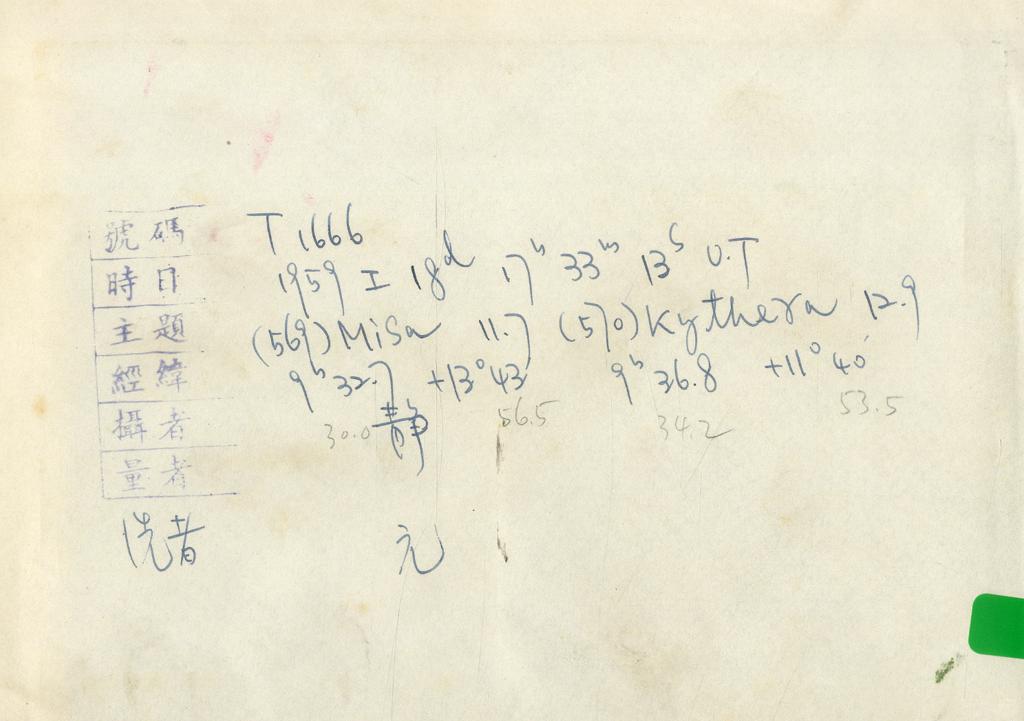 號碼 T 1666
時日 1959 I 18ᵈ 17ʰ 33ᵐ 13ˢ U.T
主題 (569) Misa 11.7 (570) Kythera 12.9
經緯 9ʰ 32.7 +13° 43' 9ʰ 36.8 +11° 40'
30.0 56.5 34.2 53.5
攝者 静
量者
洗者 元